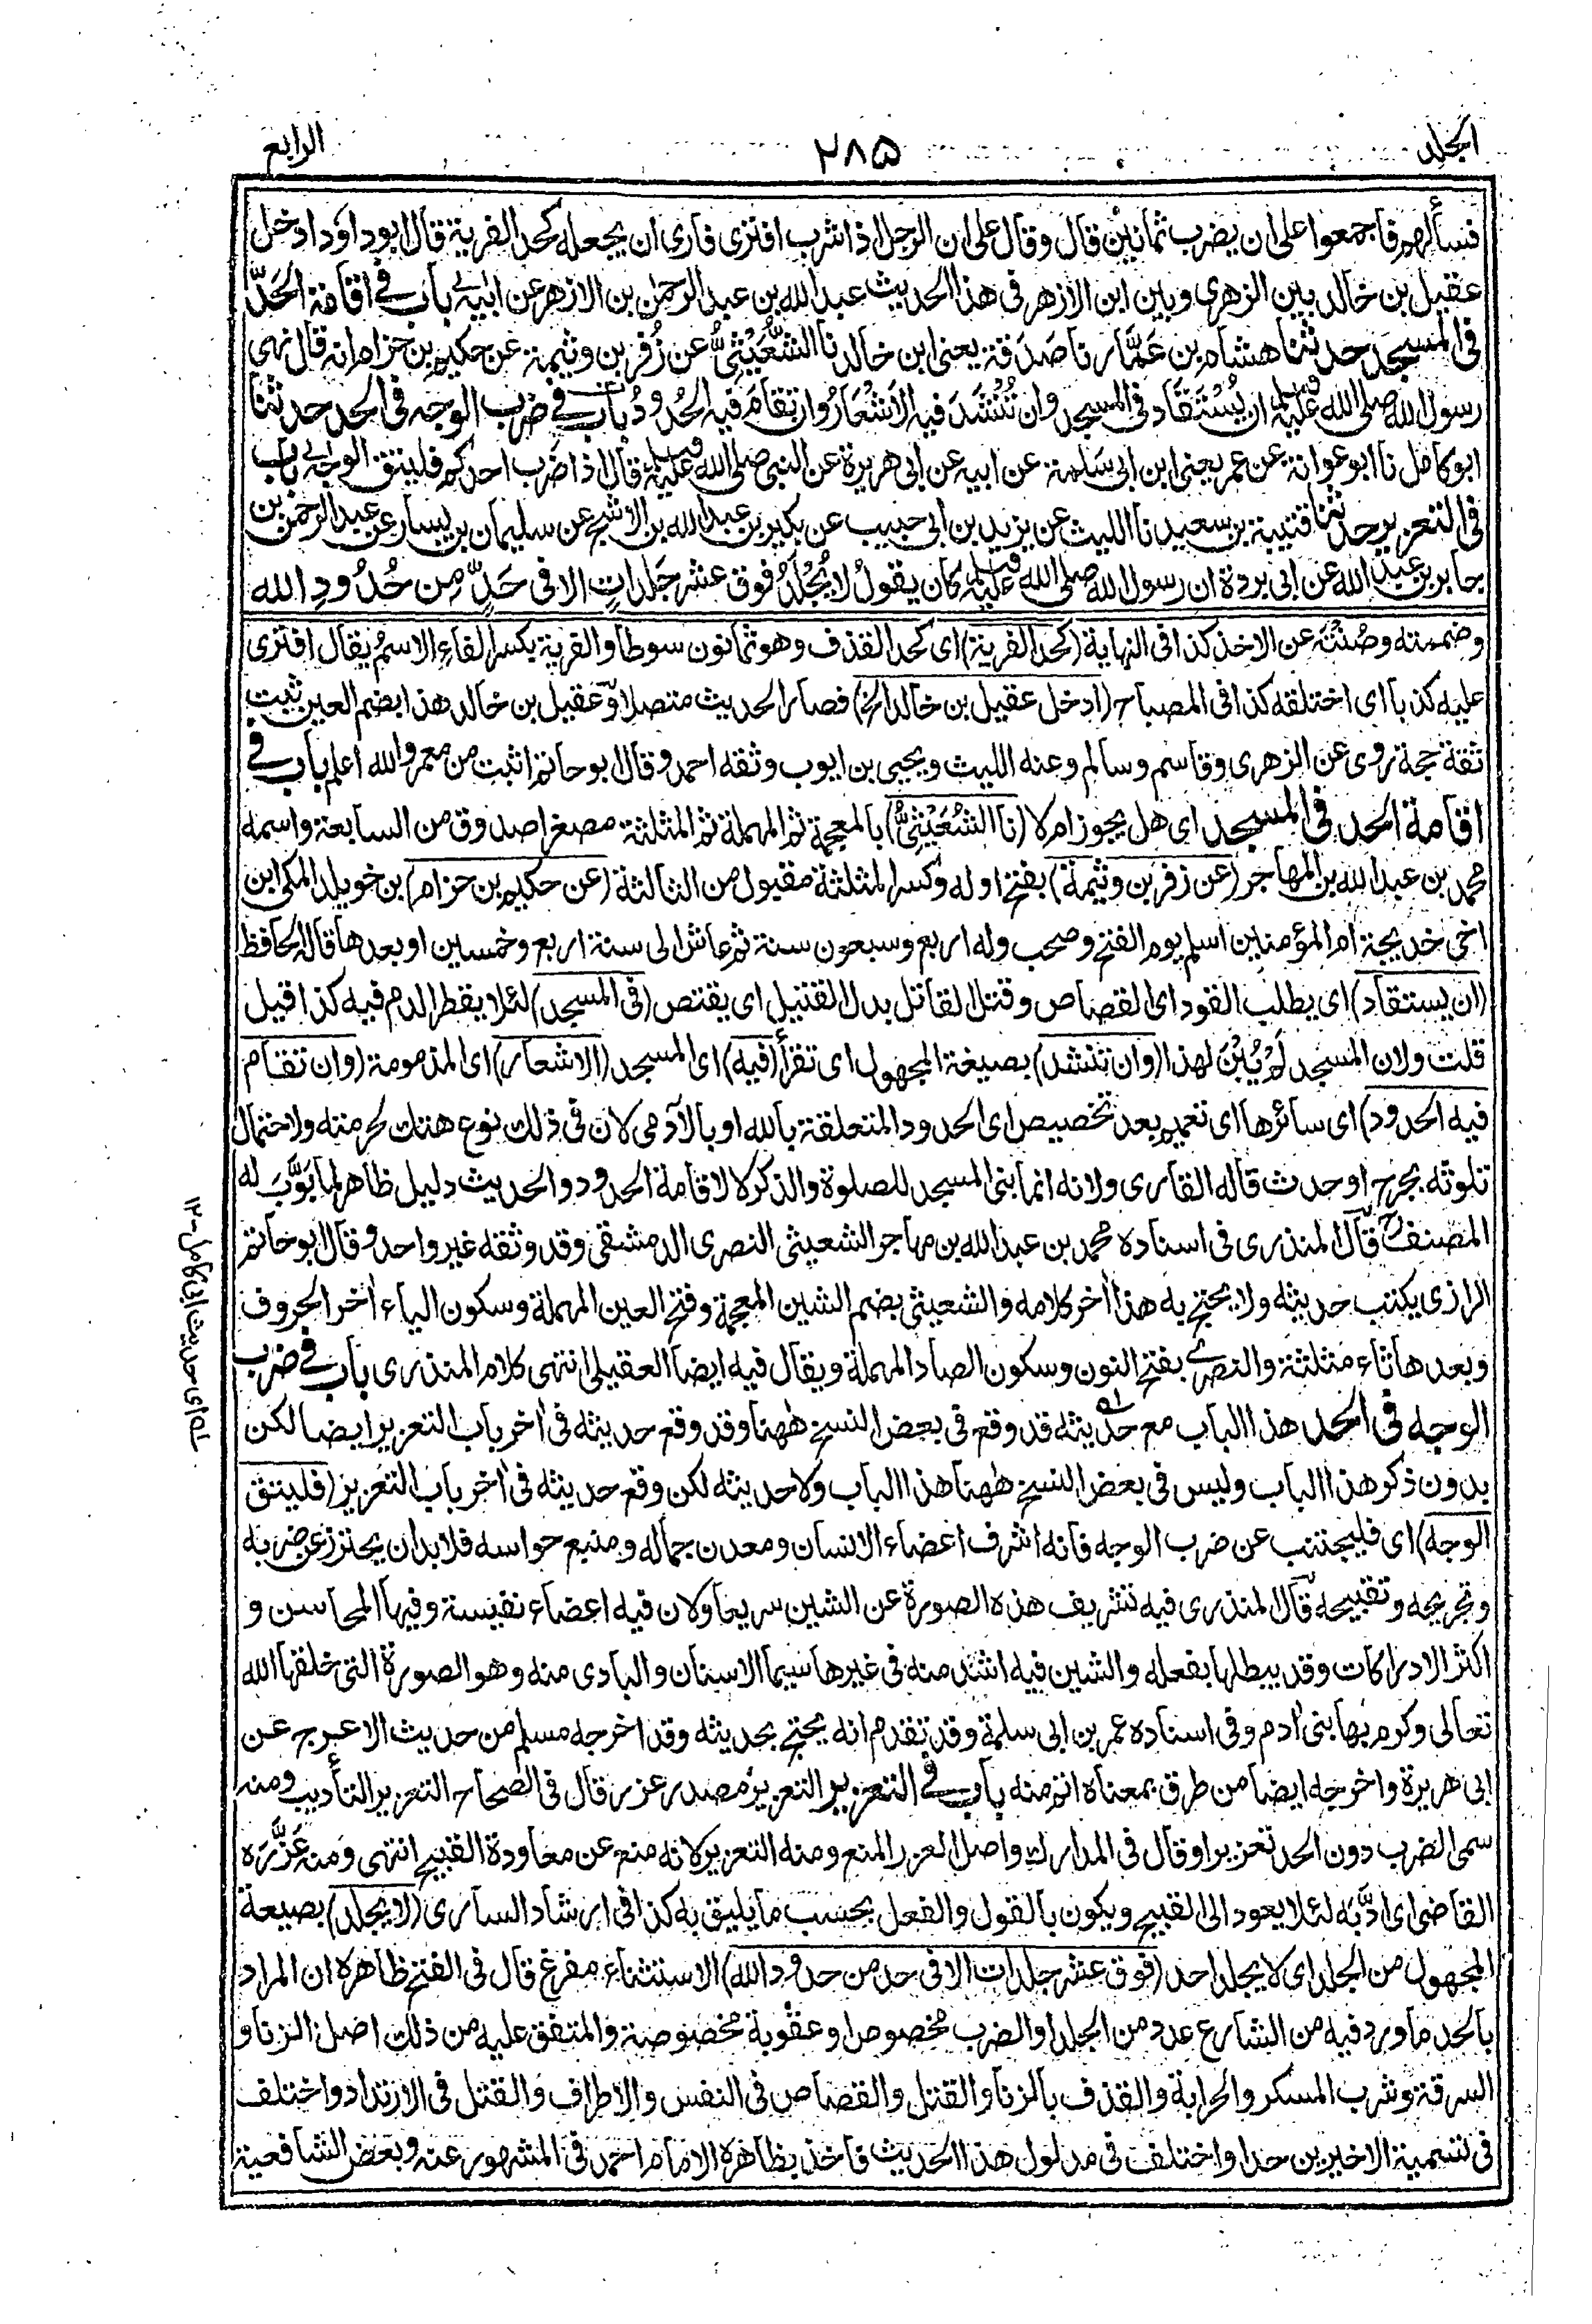 الجلد
۲۸۵
الرابع
فسألهم فأجمعوا على ان يضرب ثمانين قال وقال على ان الرجل اذا شرب افترى فارى ان يجعله كحد الفرية قال ابو داود ادخل
عقيل بن خالد بين الزهرى وبين ابن الازهر فى هذا الحديث عبد الله بن عبد الرحمٰن بن الازهر عن ابيه باب فى اقامة الحَدّ
فى المسجد حدثنا هشام بن عَمَّار نا صَدَقة يعنى ابن خالد نا الشُّعَيْثِىُّ عن زُفر بن وثيمة عن حكيم بن حزام انه قال نهى
رسول الله صلى الله عليه وسلم ان يُسْتَقَاد فى المسجد وان تُنْشَدَ فيه الاَشْعَارُ وان تقامَ فيه الحُدُودُ باب فى ضرب الوجه فى الحد حدثنا
ابو كامل نا ابو عوانة عن عمر يعنى ابن ابى سَلمة عن ابيه عن ابى هريرة عن النبى صلى الله عليه وسلم قال اذا ضرب احدكم فليتق الوجه باب
فى التعزير حدثنا قتيبة بن سعيد نا الليث عن يزيد بن ابى حبيب عن بكير بن عبد الله بن الاشج عن سليمان بن يسار عن عبد الرحمٰن بن
جابر بن عبد الله عن ابى بردة ان رسول الله صلى الله عليه وسلم كان يقولُ لا يُجْلَدُ فوق عشر جَلداتٍ الا فى حَدٍّ مِن حُدُودِ الله
وضممته وصُنْتُه عن الاخذ كذا فى النهاية (كحد الفرية) اى كحد القذف وهو ثمانون سوطا والفرية بكسر الفاء الاسم يقال افترى
عليه كذبا اى اختلقه كذا فى المصباح (ادخل عقيل بن خالد الخ) فصار الحديث متصلا وعقيل بن خالد هذا بضم العين ثبت
ثقة حجة روى عن الزهرى وقاسم وسالم وعنه الليث ويحيى بن ايوب وثقه احمد وقال ابو حاتم اثبت من معمر والله اعلم باب فى
اقامة الحد فى المسجد اى هل يجوز ام لا (نا الشُعَيْثِىُّ) بالمعجمة ثم المهملة ثم المثلثة مصغرا صدوق من السابعة واسمه
محمد بن عبد الله بن المهاجر (عن زفر بن وثيمة) بفتح اوله وكسر المثلثة مقبول من الثالثة (عن حكيم بن حزام) بن خويلد المكى ابن
اخى خديجة ام المؤمنين اسلم يوم الفتح وصحب وله اربع وسبعون سنة ثم عاش الى سنة اربع وخمسين او بعدها قاله الحافظ
(ان يستقاد) اى يطلب القود اى القصاص وقتل القاتل بدل القتيل اى يقتص (فى المسجد) لئلا يقطر الدم فيه كذا قيل
قلت ولان المسجد لم يُبْنَ لهذا (وان تنشد) بصيغة المجهول اى تقرأ (فيه) اى المسجد (الاشعار) اى المذمومة (وان تقام
فيه الحدود) اى سائرها اى تعميم بعد تخصيص اى الحدود المتعلقة بالله او بالآدمى لان فى ذلك نوع هتك لحرمته ولاحتمال
تلوثه بجرح او حدث قاله القارى ولانه انما بنى المسجد للصلوة والذكر لا لاقامة الحدود والحديث دليل ظاهر لما بَوَّبَ له
المصنف قال المنذرى فى اسناده محمد بن عبد الله بن مهاجر الشعيثى النصرى الدمشقى وقد وثقه غير واحد وقال ابو حاتم
الرازى يكتب حديثه ولا يحتج به هذا اٰخر كلامه والشعيثى بضم الشين المعجمة وفتح العين المهملة وسكون الياء اٰخر الحروف
وبعدها ثاء مثلثة والنصرى بفتح النون وسكون الصاد المهملة ويقال فيه ايضا العقيلى انتهى كلام المنذرى باب فى ضرب
الوجه فى الحد هذا الباب مع حديثه قد وقع فى بعض النسخ ههنا وقد وقع حديثه فى اٰخر باب التعزير ايضا لكن
بدون ذكر هذا الباب وليس فى بعض النسخ ههنا هذا الباب ولا حديثه لكن وقع حديثه فى اٰخر باب التعزير (فليتق
الوجه) اى فليجتنب عن ضرب الوجه فانه اشرف اعضاء الانسان ومعدن جماله ومنبع حواسه فلا بد ان يحترز عن ضربه
وتجريحه وتقبيحه قال المنذرى فيه تشريف هذه الصورة عن الشين سريعا ولان فيه اعضاء نفيسة وفيها المحاسن و
اكثر الادراكات وقد يبطلها بفعله والشين فيه اشد منه فى غيرها سيما الاسنان والبادى منه وهو الصورة التى خلقها الله
تعالى وكرم بها بنى اٰدم وفى اسناده عمر بن ابى سلمة وقد تقدم انه يحتج بحديثه وقد اخرجه مسلم من حديث الاعرج عن
ابى هريرة واخرجه ايضا من طرق بمعناه اتم منه باب فى التعزير التعزير مصدر عزر قال فى الصحاح التعزير التأديب ومنه
سمى الضرب دون الحد تعزيرا وقال فى المدارك واصل العزر المنع ومنه التعزير لانه منع عن معاودة القبيح انتهى ومنه عَزَّرَه
القاضى اى ادَّبَه لئلا يعود الى القبيح ويكون بالقول والفعل بحسب ما يليق به كذا فى ارشاد السارى (لا يجلد) بصيغة
المجهول من الجلد اى لا يجلد احد (فوق عشر جلدات الا فى حد من حدود الله) الاستثناء مفرغ قال فى الفتح ظاهره ان المراد
بالحد ما ورد فيه من الشارع عدد من الجلد او الضرب مخصوص او عقوبة مخصوصة والمتفق عليه من ذلك اصل الزنا و
السرقة وشرب المسكر والحرابة والقذف بالزنا والقتل والقصاص فى النفس والاطراف والقتل فى الارتداد واختلف
فى تسمية الاخيرين حدا واختلف فى مدلول هذا الحديث فاخذ بظاهره الامام احمد فى المشهور عنه وبعض الشافعية
له اى حديث ابى كامل ۱۲